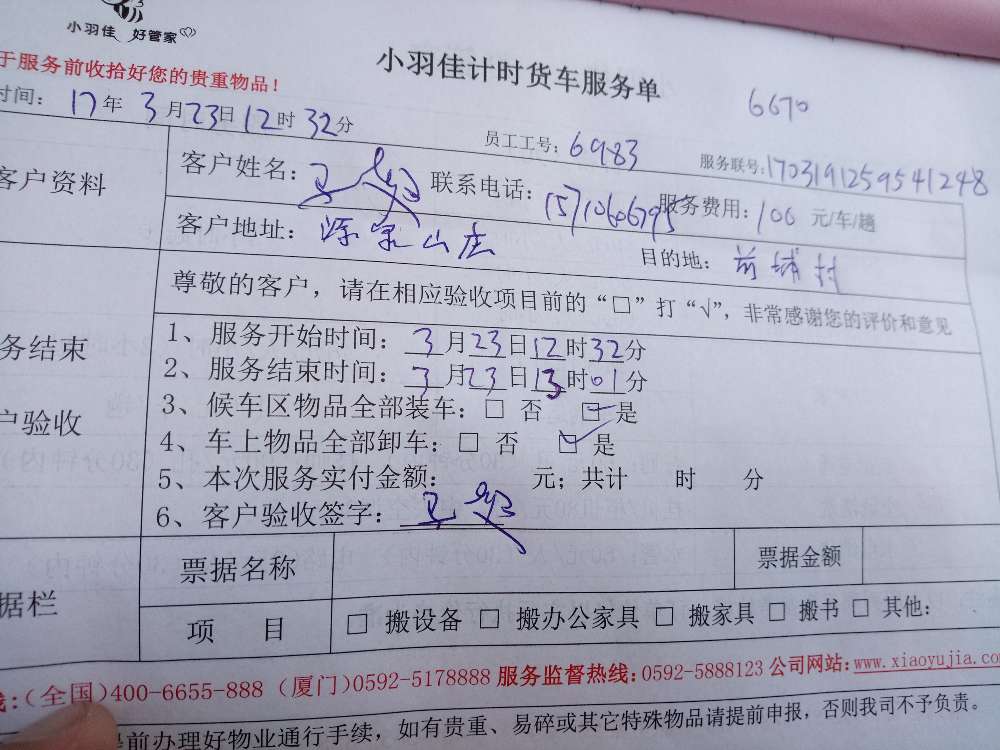 小羽佳 好管家
小羽佳计时货车服务单
6670
于服务前收拾好您的贵重物品！
时间： 17年 3月23日12时32分
员工工号：6983
服务联号：1703191259541248
客户资料
客户姓名： 联系电话：15710606795 服务费用：100 元/车/趟
客户地址：源泉山庄 目的地：前埔村
务结束
户验收
尊敬的客户，请在相应验收项目前的“□”打“√”，非常感谢您的评价和意见
1、服务开始时间：3月23日12时32分
2、服务结束时间：3月23日13时01分
3、候车区物品全部装车：□ 否 ☑是
4、车上物品全部卸车：□ 否 ☑是
5、本次服务实付金额： 元；共计 时 分
6、客户验收签字：
据栏
票据名称 票据金额
项 目 □ 搬设备 □ 搬办公家具 □ 搬家具 □ 搬书 □ 其他：
线：（全国）400-6655-888（厦门）0592-5178888 服务监督热线：0592-5888123 公司网站：www.xiaoyujia.com
提前办理好物业通行手续，如有贵重、易碎或其它特殊物品请提前申报，否则我司不予负责。